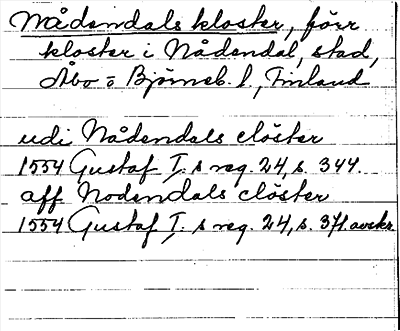 Nådendals kloster, förr
kloster i Nådendal, stad,
Åbo o Björneb. l, Finland
udi Nådendals clöster
1554 Gustaf I:s reg. 24, s. 344.
aff Nodendals clöster
1554 Gustaf I:s reg. 24, s. 371. avskr.